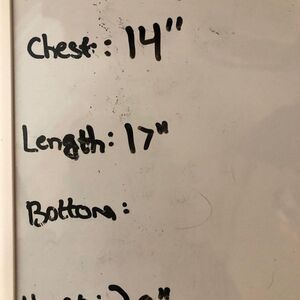 Chest: 14"
Length: 17"
Bottom: